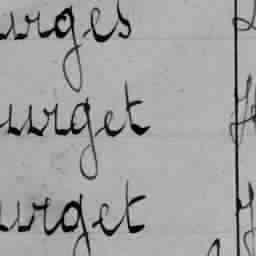 urges
urget
urget